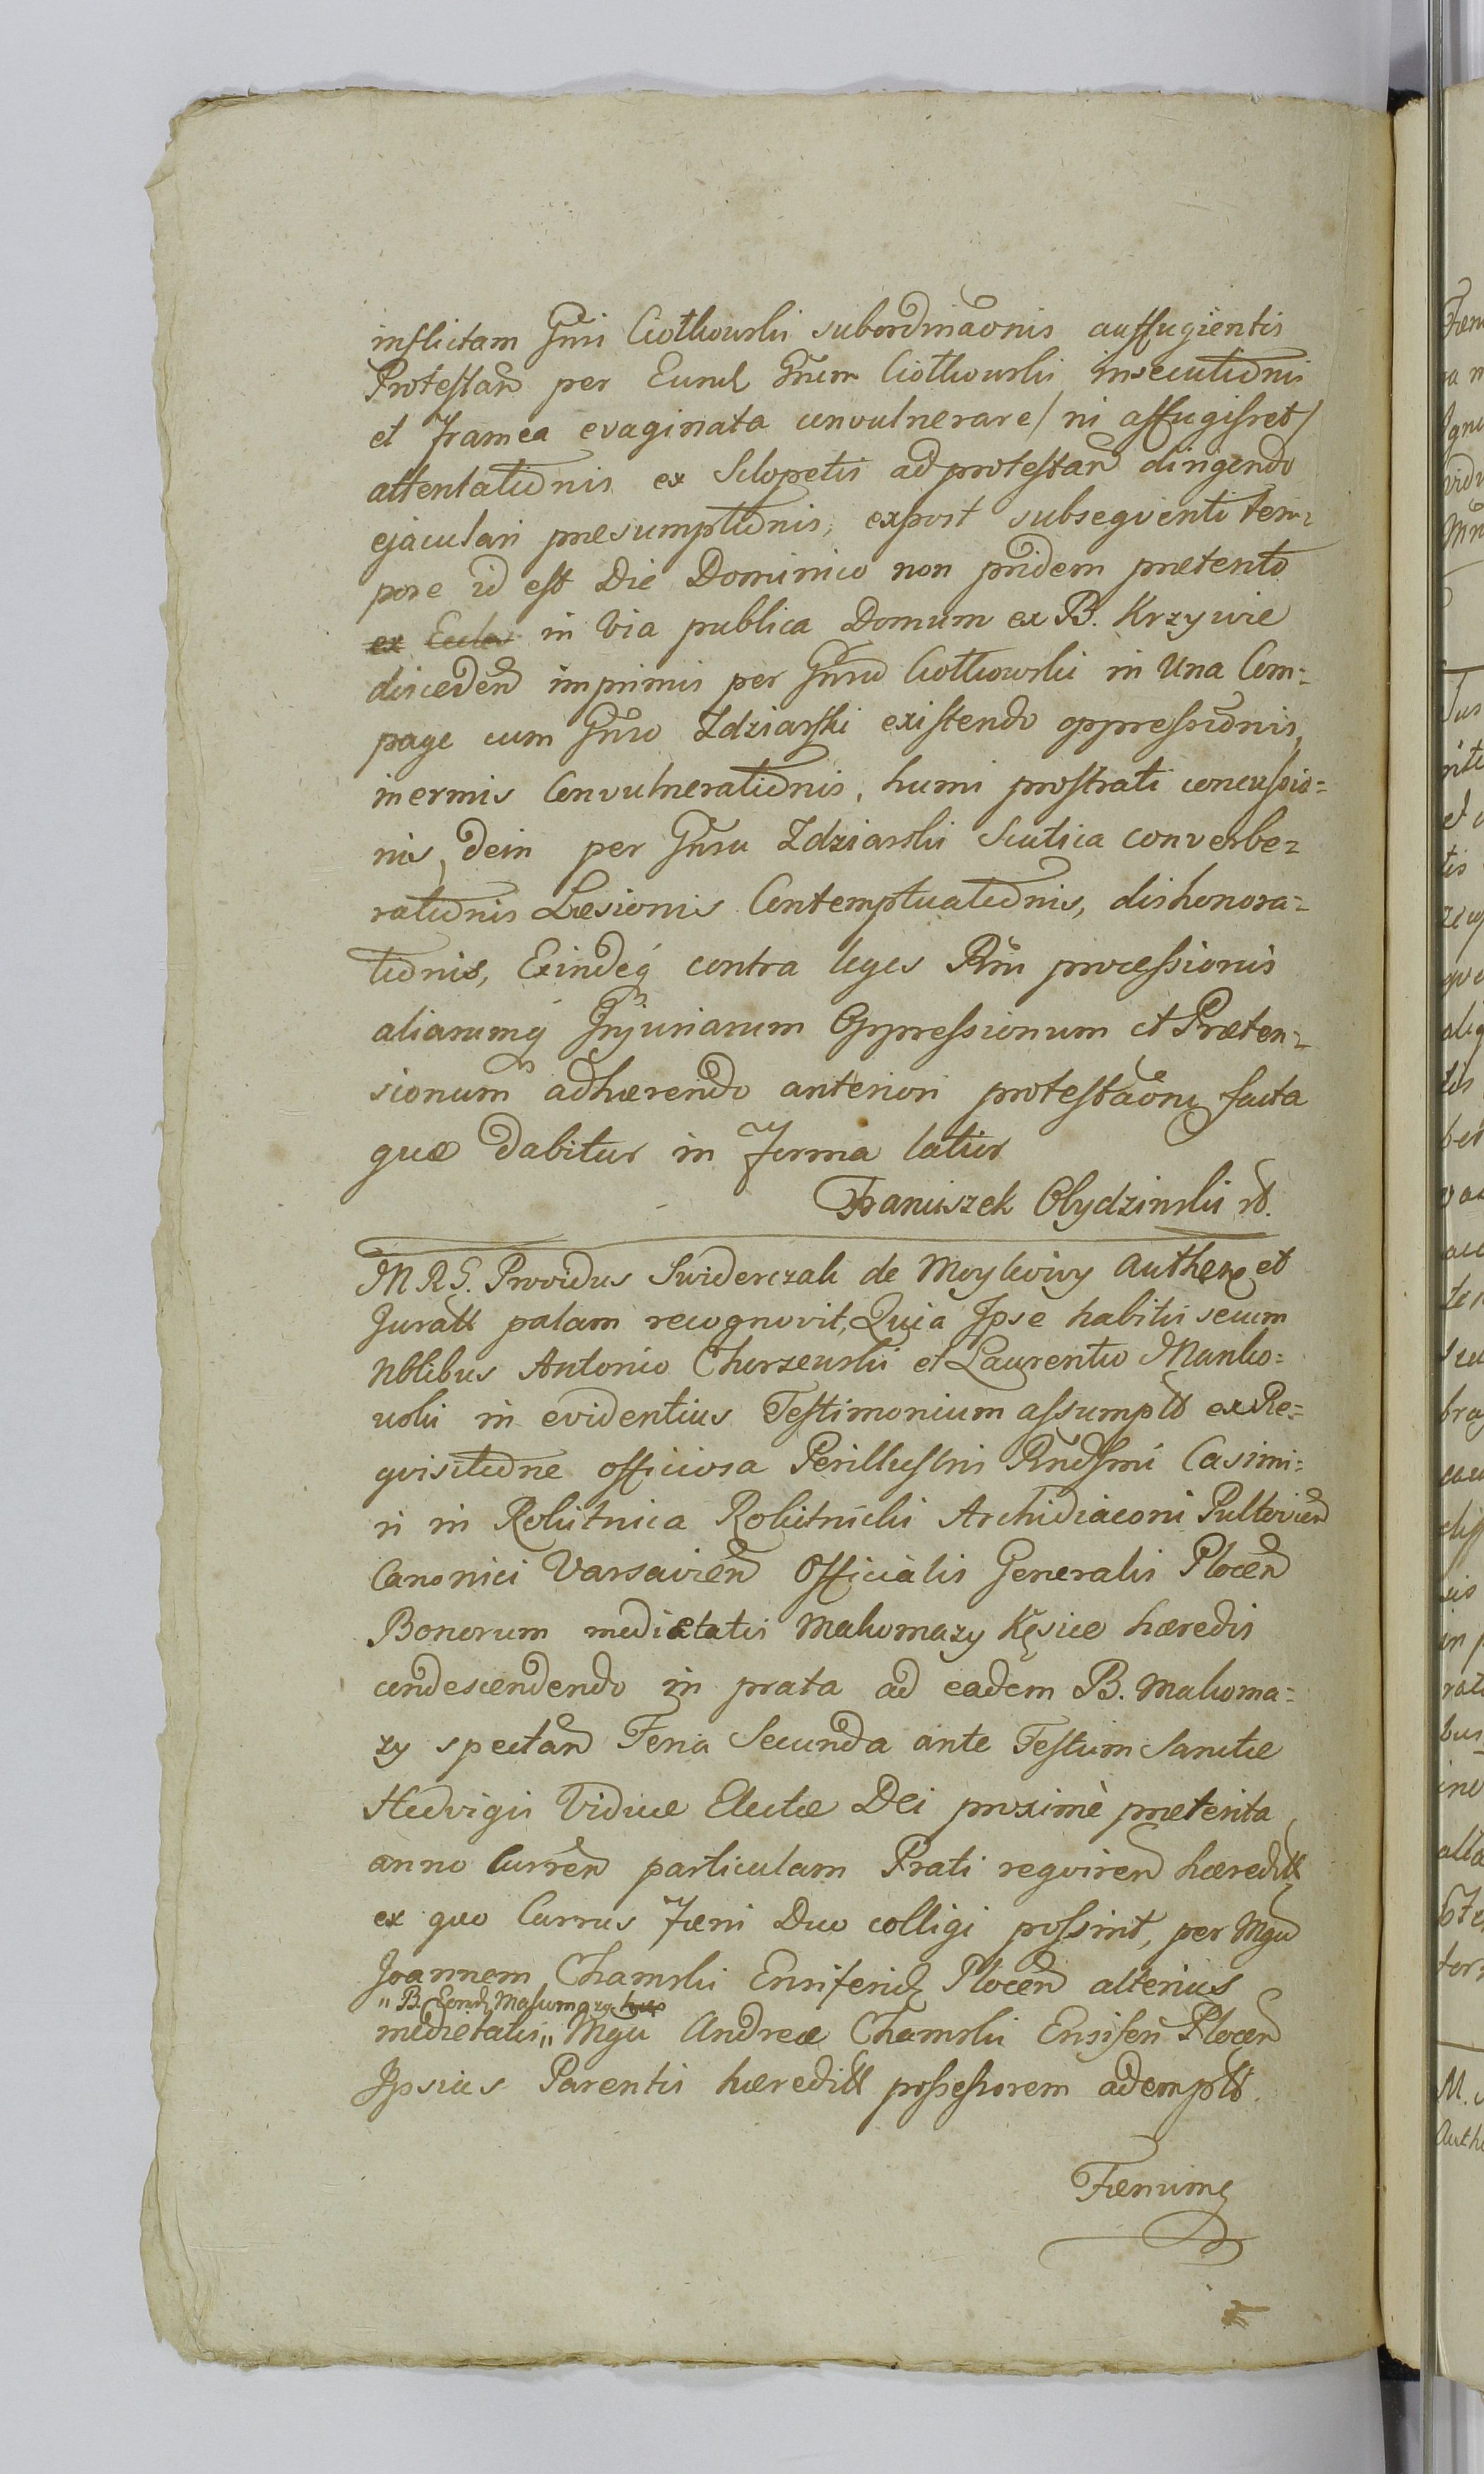 inflictam Gnsi Ciołkowski subordinaonis auffugientis
Protestan per Eund Gnsum Ciołkowski insecutionis
et framea evaginata convulnerare / ni affugisset /
attentationis ex Sclopetis ad protestan dirigendo
ejaculari præsumptionis, expost subseqventi tem=
pore id est Die Dominico non pridem præterito
in Via publica Domum ex B. Krzywie
disceden imprimis per Gnsu Ciołkowski in Una Com=
page cum Gnso Zdziarski existendo oppressionis,
inermis Convulnerationis, humi prostrati concussio=
nis, dein per Gnsu Zdziarski Scutica converbe=
rationis Læsionis Contemptuationis, dishonora=
tionis, Exindeq contra leges Rni processionis
aliarumq Injuriarum Oppressionum et Præten=
sionum adhærendo anteriori protestaoni facta
quæ dabitur in forma latior
Franciszek Obydzinski
M R G. Providus Swiderczak de Moykowy Authen et
Juratt palam recognovit, Quia Ipse habitis secum
Nbilibus Antonio Chorzewski et Laurentio Manko=
wski in evidentius Testimonium assumptt ex Re=
qvisitione officiosa Perillustris Rndsmi Casimi=
ri in Rokitnica Rokitnicki Archidiaconi Pultovien
Canonici Varsavien Officialis Generalis Plocen
Bonorum medietatis Makomazy Kęsice hæredis
condescendendo in prata ad eadem B. Makoma=
zy spectan Feria Secunda ante Festum Sanctæ
Hedvigis Viduæ Electæ Dei proximè præterita
anno Curren particulam Prati reqviren hæreditt
ex quo Currus fæni Duo colligi possint, per Mgu
Joannem Chamski Ensiferid Plocen alterius
" B. Eorund Makumazy
medietatis " Mgci Andreæ Chamski Ensiferi Plocen
Ipsius Parentis hæreditt possessorem ademptt.
Fænumq